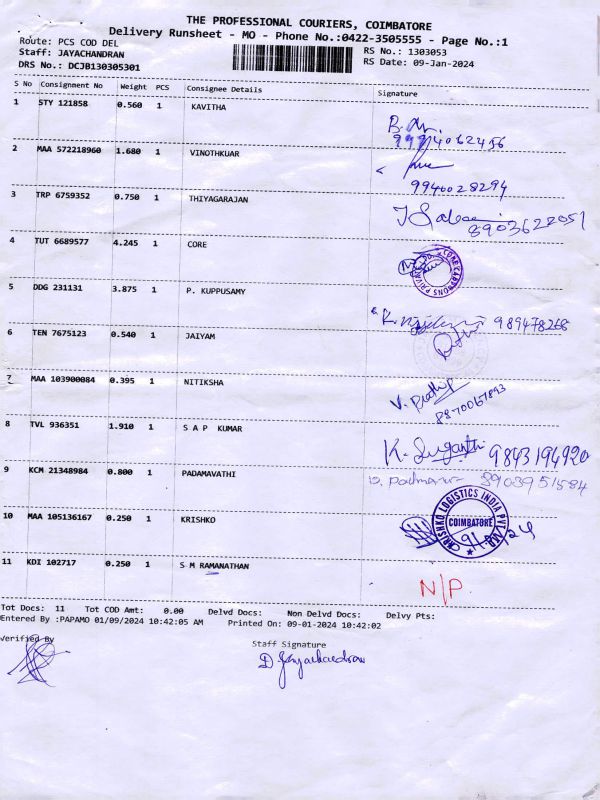 THE PROFESSIONAL COURIERS, COIMBATORE
Delivery Runsheet - MO - Phone No.:0422-3505555 - Page No.:1
Route: PCS COD DEL RS No.: 1303053
Staff: JAYACHANDRAN RS Date: 09-Jan-2024
DRS No.: DCJB130305301
S No Consignment No Weight PCS Consignee Details Signature
1 STY 121858 0.560 1 KAVITHA
9994062456
2 MAA 572218960 1.680 1 VINOTHKUAR
9940028294
3 TRP 6759352 0.750 1 THIYAGARAJAN
8903622051
4 TUT 6689577 4.245 1 CORE
5 DDG 231131 3.875 1 P. KUPPUSAMY
989478268
6 TEN 7675123 0.540 1 JAIYAM
7 MAA 103900084 0.395 1 NITIKSHA
V. Prathip
8 TVL 936351 1.910 1 S A P KUMAR
K. Suganthi 9843194920
9 KCM 21348984 0.800 1 PADAMAVATHI
8903951584
10 MAA 105136167 0.250 1 KRISHKO
KRISHKO LOGISTICS INDIA PVT. LTD.
COIMBATORE
11 KDI 102717 0.250 1 S M RAMANATHAN
N/P
Tot Docs: 11 Tot COD Amt: 0.00 Delvd Docs: Non Delvd Docs: Delvy Pts:
Entered By :PAPAMO 01/09/2024 10:42:05 AM Printed On: 09-01-2024 10:42:02
Verified By Staff Signature
D Jayachandran